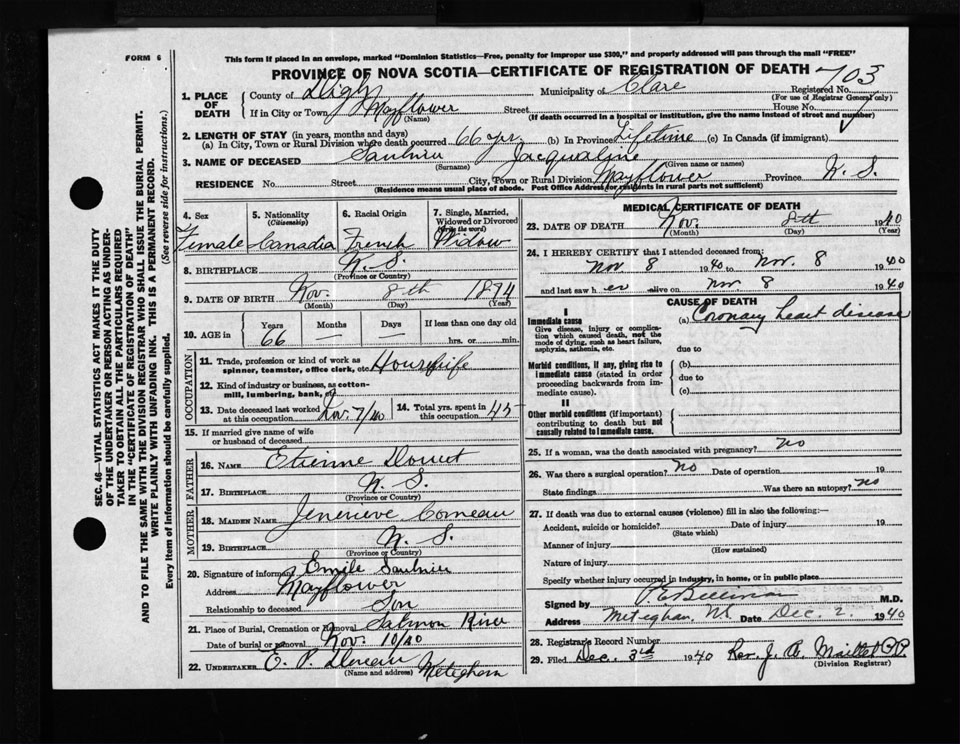 FORM 6
This form if placed in an envelope, marked "Dominion Statistics—Free, penalty for improper use $300," and properly addressed will pass through the mail "FREE"
PROVINCE OF NOVA SCOTIA—CERTIFICATE OF REGISTRATION OF DEATH
703
1. PLACE OF DEATH
County of Digby Municipality of Clare Registered No.
(For use of Registrar General only)
If in City or Town Mayflower Street House No.
(Name) (If death occurred in a hospital or institution, give the name instead of street and number)
2. LENGTH OF STAY (in years, months and days)
(a) In City, Town or Rural Division where death occurred 66 yrs. (b) In Province Lifetime (c) In Canada (if immigrant)
3. NAME OF DECEASED Saulnier Jacqualine
(Surname) (Given name or names)
RESIDENCE No. Street City, Town or Rural Division Mayflower Province N. S.
(Residence means usual place of abode. Post Office Address for residents in rural parts not sufficient)
4. Sex
Female
5. Nationality
(Citizenship)
Canadia
6. Racial Origin
French
7. Single, Married, Widowed or Divorced
(Write the word)
Widow
8. BIRTHPLACE N. S.
(Province or Country)
9. DATE OF BIRTH Nov. 8th 1874
(Month) (Day) (Year)
10. AGE in
Years Months Days If less than one day old
66 — — hrs. or min.
OCCUPATION
11. Trade, profession or kind of work as spinner, teamster, office clerk, etc. Housewife
12. Kind of industry or business, as cotton-mill, lumbering, bank, etc.
13. Date deceased last worked at this occupation Nov. 7/40
14. Total yrs. spent in this occupation 45
15. If married give name of wife or husband of deceased
FATHER
16. NAME Etienne Doucet
17. BIRTHPLACE N. S.
(Province or Country)
MOTHER
18. MAIDEN NAME Jenevieve Comeau
19. BIRTHPLACE N. S.
(Province or Country)
20. Signature of informant Emile Saulnier
Address Mayflower
Relationship to deceased Son
21. Place of Burial, Cremation or Removal Salmon River
Date of burial or removal Nov. 10/40
22. UNDERTAKER E. P. Meteghan
(Name and address)
MEDICAL CERTIFICATE OF DEATH
23. DATE OF DEATH Nov. 8th 1940
(Month) (Day) (Year)
24. I HEREBY CERTIFY that I attended deceased from:
Nov 8 1940 to Nov. 8 1940
and last saw h er alive on Nov 8 1940
CAUSE OF DEATH
I
Immediate cause
Give disease, injury or complication which caused death, not the mode of dying, such as heart failure, asphyxia, asthenia, etc.
(a) Coronary heart disease
due to
Morbid conditions, if any, giving rise to immediate cause (stated in order proceeding backwards from immediate cause).
(b)
due to
(c)
II
Other morbid conditions (if important) contributing to death but not causally related to immediate cause.
25. If a woman, was the death associated with pregnancy? no
26. Was there a surgical operation? no Date of operation 19
State findings Was there an autopsy? no
27. If death was due to external causes (violence) fill in also the following:—
Accident, suicide or homicide? Date of injury 19
(State which)
Manner of injury
(How sustained)
Nature of injury
Specify whether injury occurred in industry, in home, or in public place
Signed by M.D.
Address Meteghan, N.S. Date Dec. 2, 1940
28. Registrar's Record Number
29. Filed Dec. 3rd 1940 Rev. J. A. Maillet P.P.
(Division Registrar)
SEC. 46—VITAL STATISTICS ACT MAKES IT THE DUTY
OF THE UNDERTAKER OR PERSON ACTING AS UNDER-
TAKER TO OBTAIN ALL THE PARTICULARS REQUIRED
IN THE "CERTIFICATE OF REGISTRATION OF DEATH"
AND TO FILE THE SAME WITH THE DIVISION REGISTRAR WHO SHALL ISSUE THE BURIAL PERMIT.
WRITE PLAINLY WITH UNFADING INK. THIS IS A PERMANENT RECORD.
Every item of information should be carefully supplied. (See reverse side for instructions.)